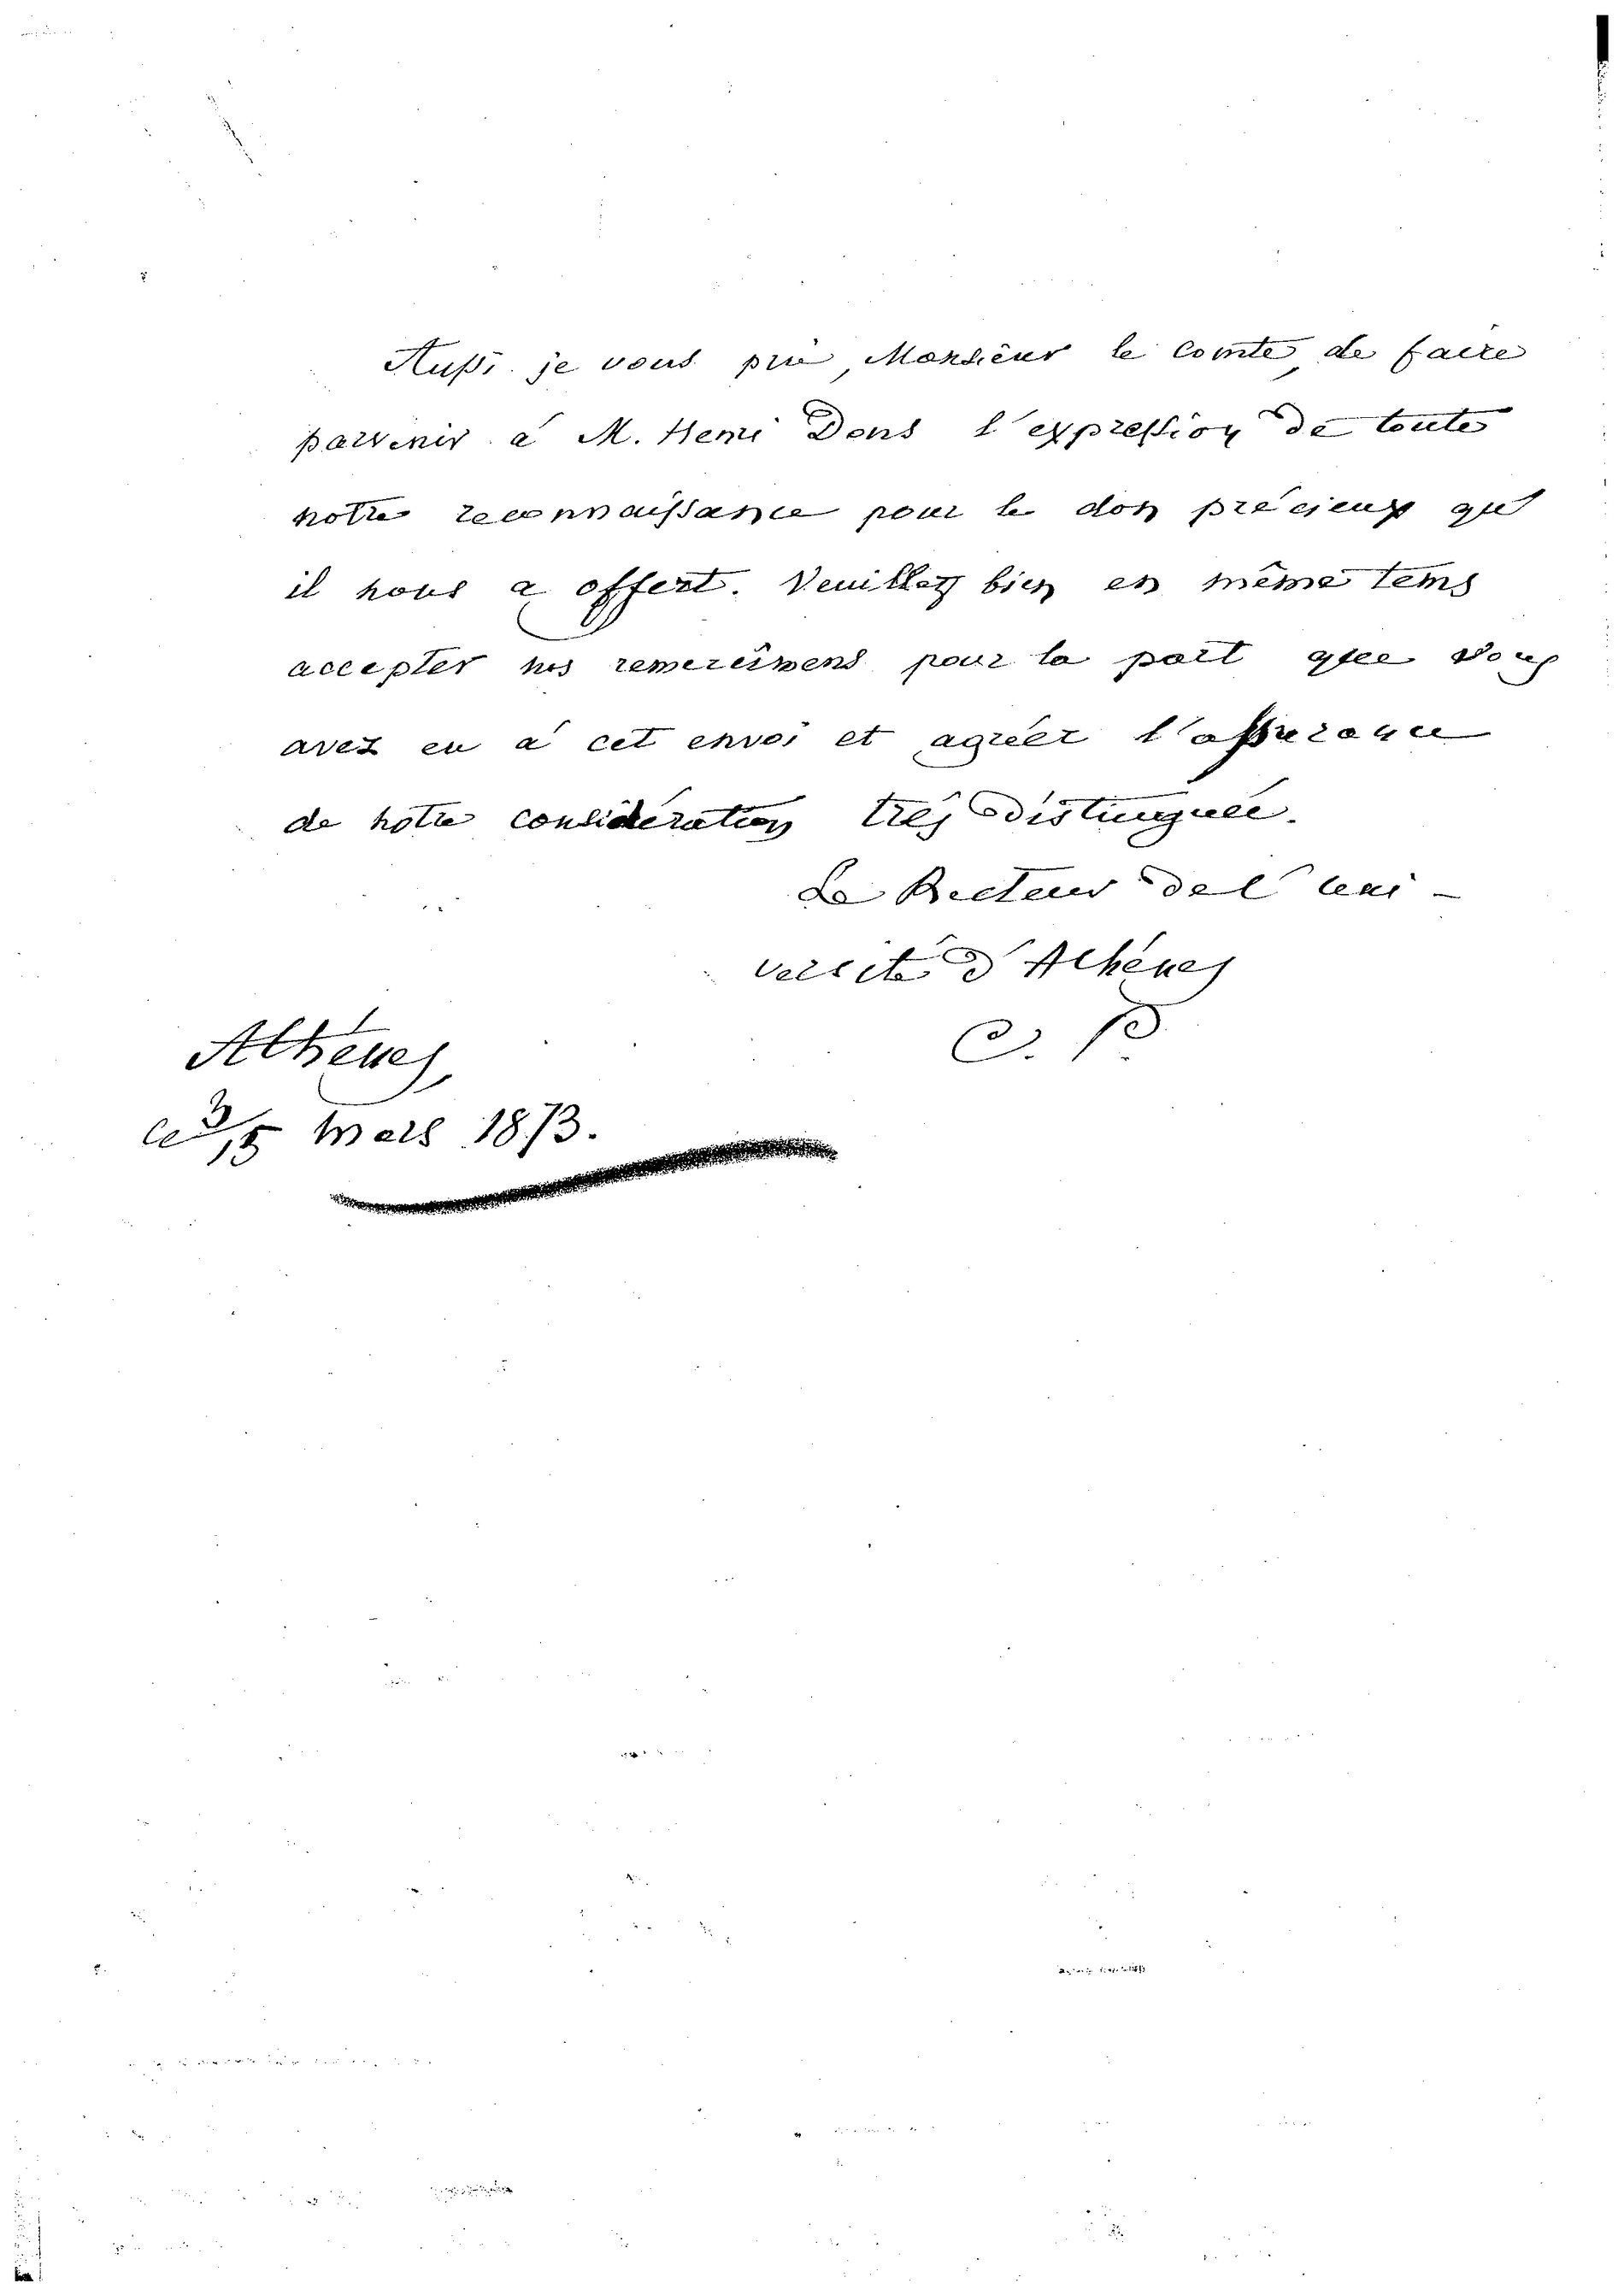 Aussi je vous prie, Monsieur le Comte, de faire
parvenir à M. Henri Dons l'expression de toute
notre reconnaissance pour le don précieux qu'
il nous a offert. Veuillez bien en même tems
accepter nos remercimens pour la part que vous
avez eu à cet envoi et agréer l'assurance
de notre considération très distinguée.
Le Recteur de l'uni-
versité d'Athènes
Athènes,
ce 3/15 Mars 1873.